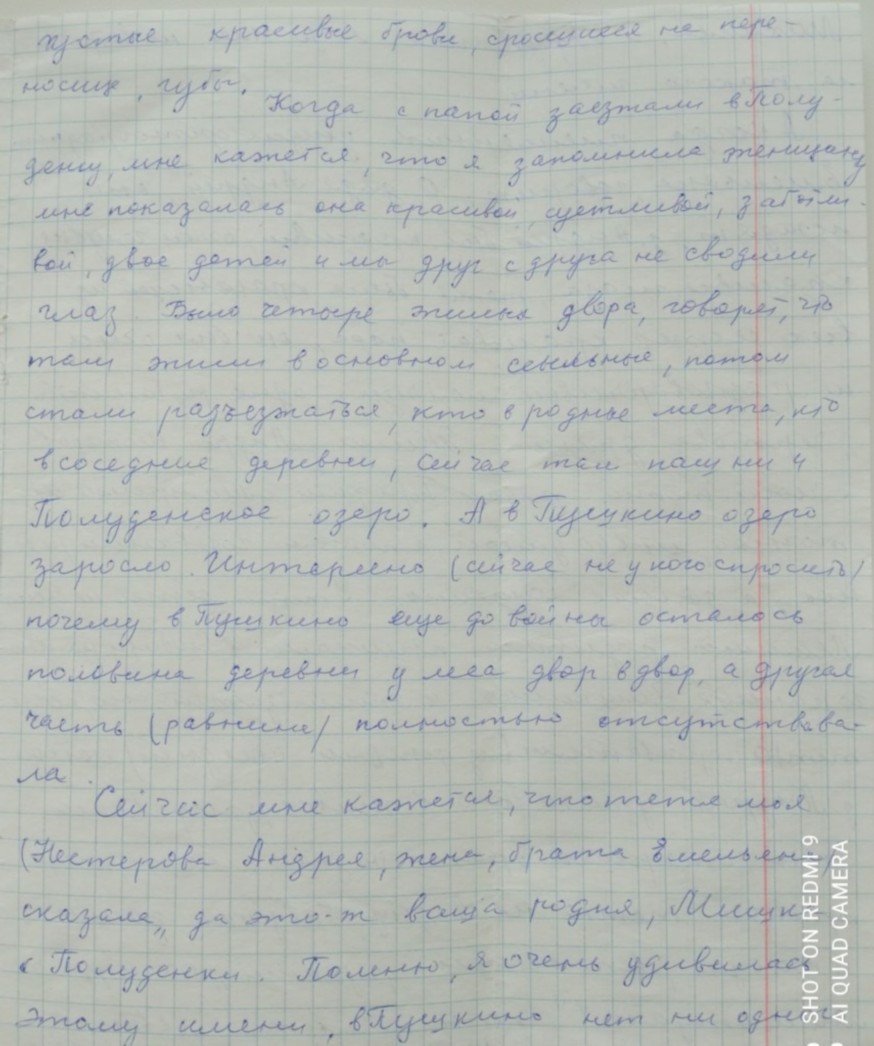 густые красивые брови, сросшиеся на пере-
носице, губы.
Когда с папой заезжали в Полу-
денку, мне кажется, что я запомнила женщину
мне показалась она красивой, суетливой, заботли-
вой, двое детей и мы друг с друга не сводили
глаз. Было четыре жилых двора, говорят, что
там жили в основном ссыльные, потом
стали разъезжаться, кто в родные места, кто
в соседние деревни, сейчас там пашни и
Полуденское озеро. А в Пушкино озеро
заросло. Интересно (сейчас не у кого спросить)
почему в Пушкино еще до войны осталось
половина деревни у леса двор в двор, а другая
часть (равнина) полностью отсутствова-
ла.
Сейчас мне кажется, что тетя моя
(Нестерова Андрея, жена, брата Емельяна)
сказала,, да это-ж ваша родня, Мишка
с Полуденки. Помню, я очень удивилась
этому имени, в Пушкино нет ни одного
SHOT ON REDMI 9
AI QUAD CAMERA